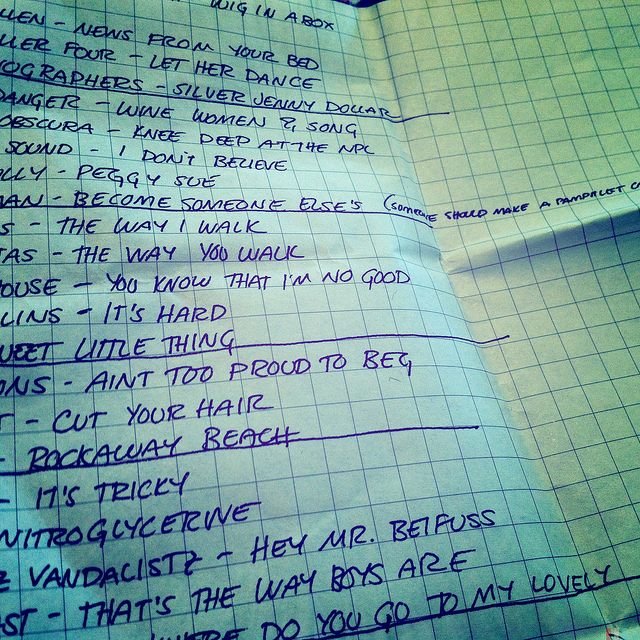 WIG IN A BOX
LLEN - NEWS FROM YOUR BED
LLER FOUR - LET HER DANCE
OGRAPHERS - SILVER JENNY DOLLAR
DANGER - WINE WOMEN & SONG
OBSCURA - KNEE DEEP AT THE NPL
SOUND - I DON'T BELIEVE
LLY - PEGGY SUE
MAN - BECOME SOMEONE ELSE'S (SOMEONE SHOULD MAKE A PAMPHLET
S - THE WAY I WALK
TAS - THE WAY YOU WALK
OUSE - YOU KNOW THAT I'M NO GOOD
LLINS - IT'S HARD
WEET LITTLE THING
ONS - AINT TOO PROUD TO BEG
T - CUT YOUR HAIR
- ROCKAWAY BEACH
- IT'S TRICKY
NITROGLYCERINE
E VANDALISTZ - HEY MR. BEIFUSS
ST - THAT'S THE WAY BOYS ARE
WHERE DO YOU GO TO MY LOVELY